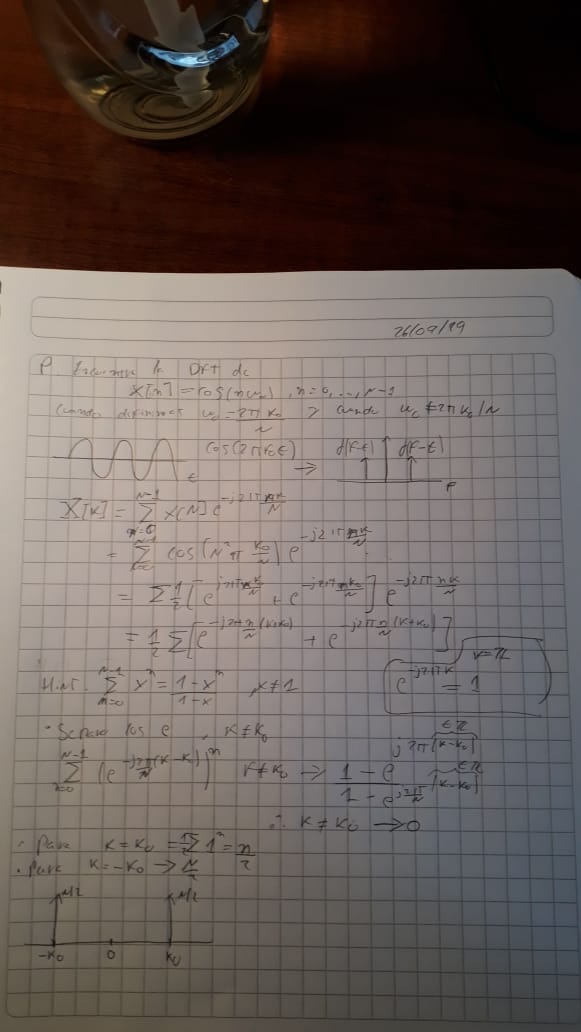 26/09/19
P. Encuentre la DFT de
x[n] = cos(nω₀), n=0, ..., N-1
Cuando definimos ω₀ = 2πk₀/N y cuando ω₀ ≠ 2πk₀/N
cos(2πf₀t) → δ(f-f) δ(f-f)
t
F
X[k] = Σ_{n=0}^{N-1} x[N] e^{-j2π nk/N}
= Σ^{N-1} cos(n2π k₀/N) e^{-j2π nk/N}
= Σ 1/2 [e^{j2π nk₀/N} + e^{-j2π nk₀/N}] e^{-j2π nk/N}
= 1/2 Σ [e^{-j2π n/N (k-k₀)} + e^{-j2π n/N (k+k₀)}]
Hint. Σ_{n=0}^{N-1} xⁿ = 1-xⁿ / 1-x , x≠1
e^{-j2πk} = 1
· Separo los e , k≠k₀
Σ^{N-1} (e^{-j2π/N (k-k)})ⁿ k≠k₀ → 1-e^{j2π(k-k₀)} / 1-e^{j2π/N (k-k₀)}
∈ℤ
∈ℤ
∴ k ≠ k₀ → 0
· Para k=k₀ = 1/2 Σ 1ⁿ = n/2
· Para k=-k₀ → N/2
N/2 N/2
-k₀ 0 k₀